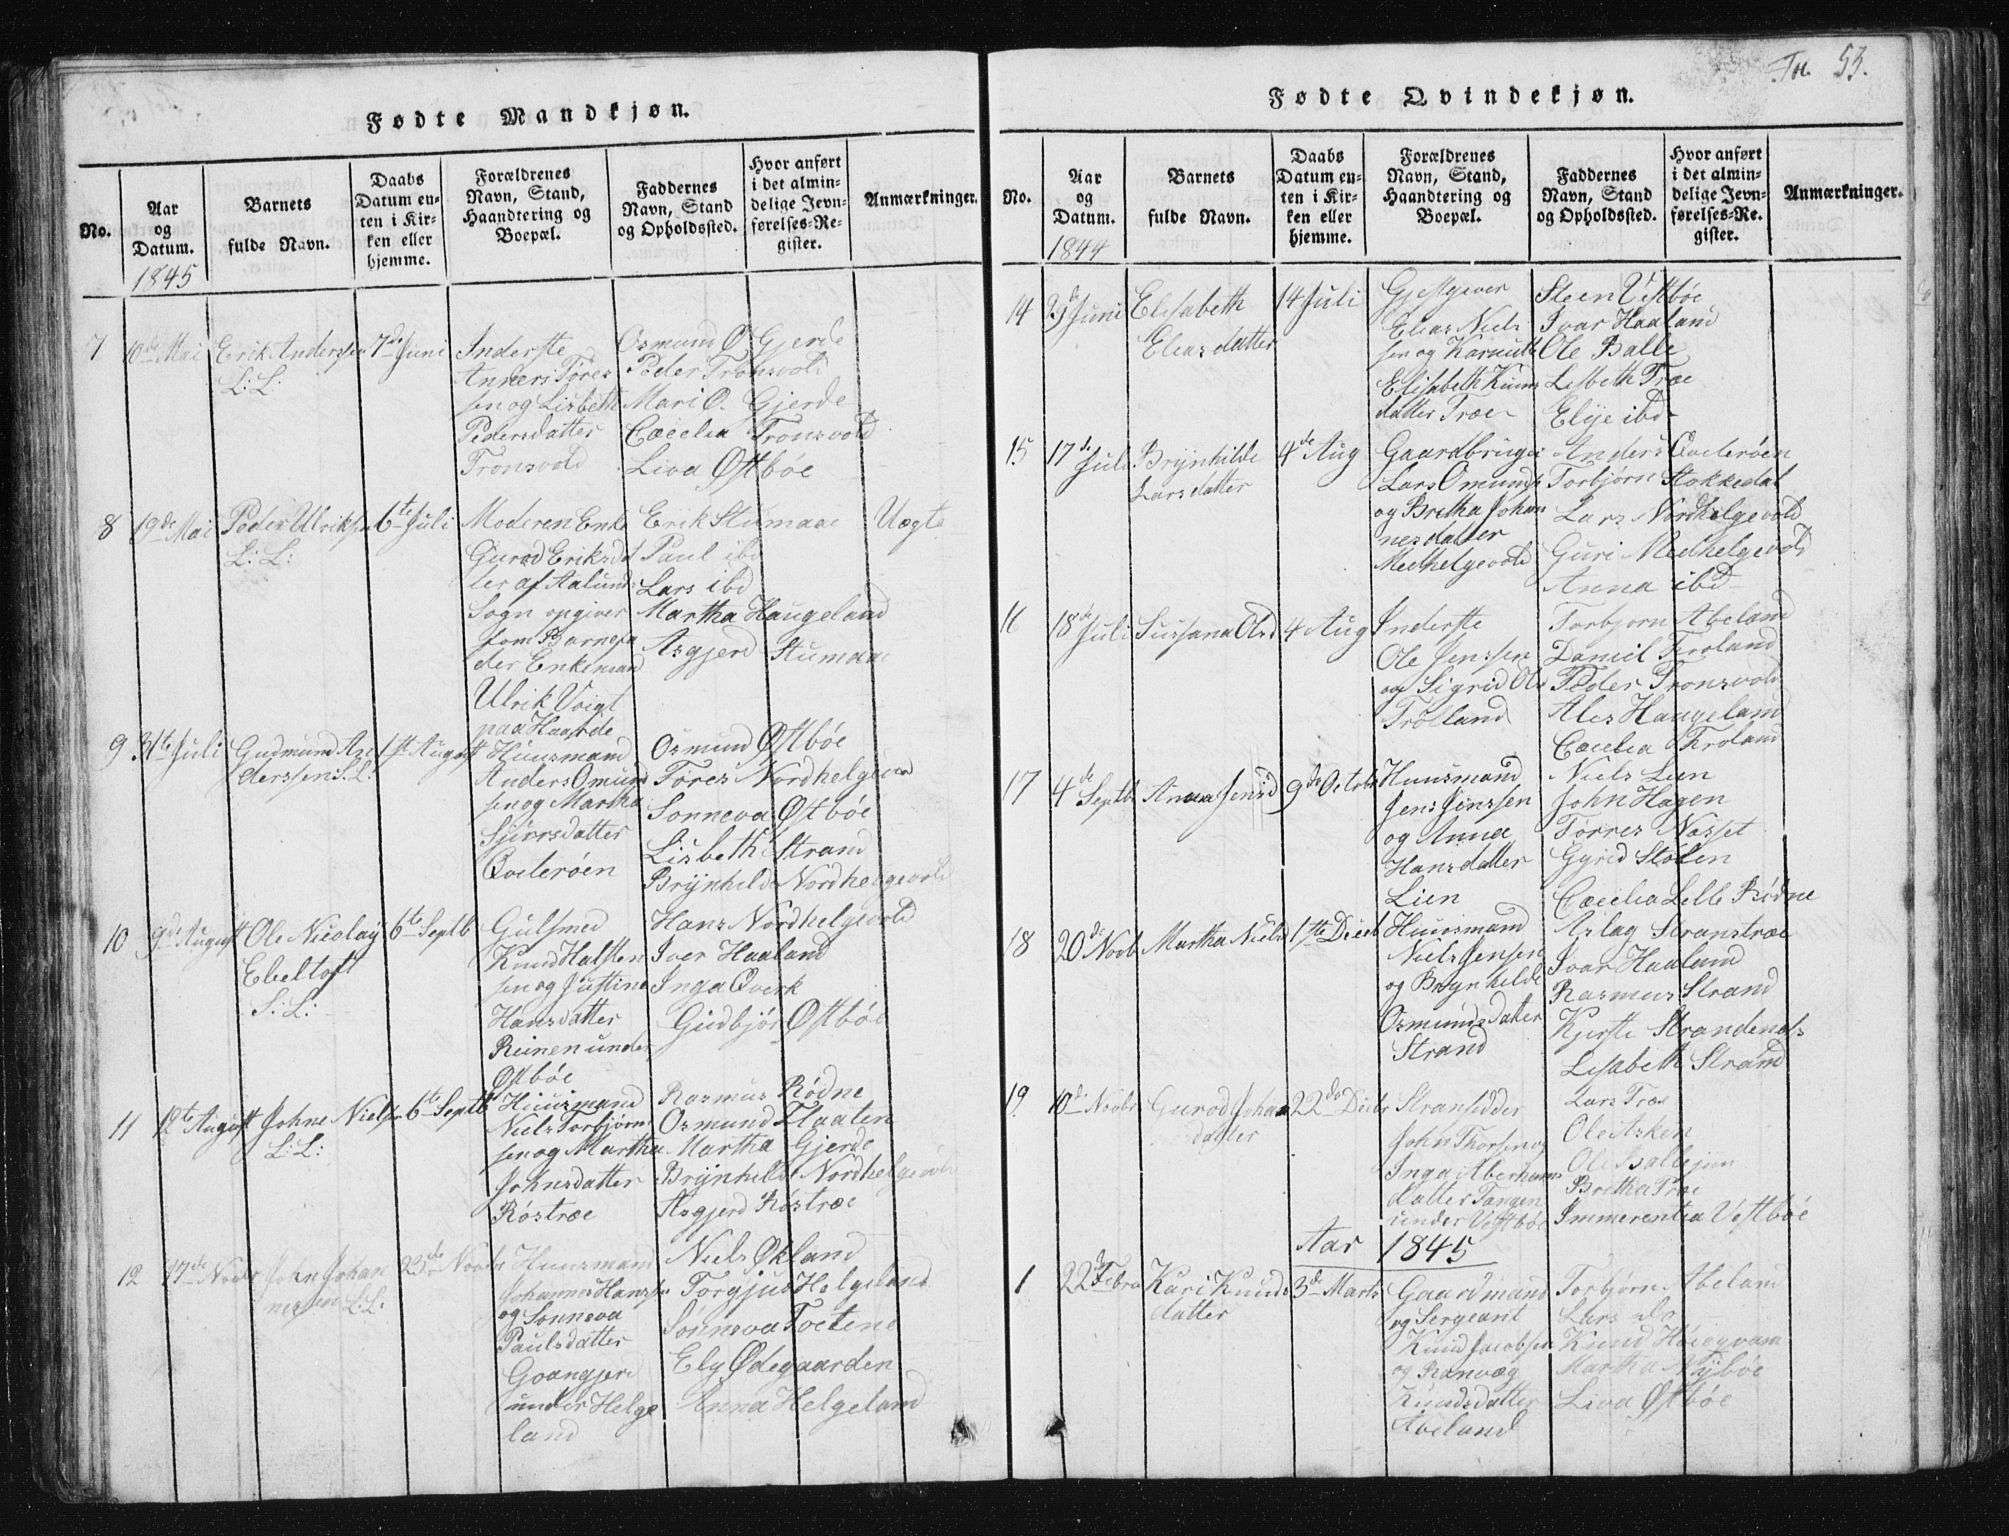 Fødte Mandkjøn.
No.
Aar
og
Datum.
Barnets
fulde Navn.
Daabs
Datum en-
ten i Kir-
ken eller
hjemme.
Forældrenes
Navn, Stand,
Haandtering og
Boepæl.
Faddernes
Navn, Stand
og Opholdssted.
Hvor anført
i det almin-
delige Jevn-
førelses-Re-
gister.
Anmærkninger.
1845
7
10de Mai
Erik Anderssen
L: L:
7de Juni
Inderste
Anders Tores
sen og Lisbeth
Pedersdatter
Tronsvold
Osmund O. Gjerde
Peder Tronsvold
Mari O. Gjerde
Cæcelia Tronsvold
Liva Østbøe
8
19de Mai
Peder Ulriksen
L: L:
6te Juli
Moderen Enke
Gurod Eriksdat
ter af Aalunds
Sogn opgiver
som Barnefa
der Enkemand
Ulrik Voigt
paa Haarde
Erik Stumaae
Paul ibd
Lars ibd
Martha Haugeland
Asgjerd Stumaae
Uægte
9
31te Juli
Gudmund An
derssen S. L.
1ste August
Huusmand
Anders Omund
sen og Martha
Sjursdatter
Qveterøen
Osmund Østbøe
Tores Nordhelgevold
Sonneva Østbøe
Lisbeth Strand
Brynhilde Nordhelgevold
10
9de August
Ole Nicolay
Ebeltoft
S: L:
6te Septb
Gulsmed
Knud Halsten
sen og Justine
Hansdatter
Reinen under
Østbøe
Hans Nordhelgevold
Iver Haaland
Inga Qverk
Gudbjør Østbøe
11
12te August
Johne Nielsen
L: L:
6te Septb
Huusmand
Niels Torbjørn
sen og Martha
Johnsdatter
Røstræe
Rasmus Rødne
Osmund Flaaten
Martha Gjerde
Brynhilde Nordhelgevold
Asgjerd Røstræe
12
17de Novbr
John Johan
nessen L: L:
23de Novbr
Huusmand
Johannes Hanssen
og Sonneva
Paulsdatter
Goangjerd
under Helge
land
Niels Økland
Torgjus Helgeland
Sonneva Toetene
Ely Ødegaarden
Anna Helgeland
Fol. 53.
Fødte Qvindekjøn.
No.
Aar
og
Datum.
Barnets
fulde Navn.
Daabs
Datum en-
ten i Kir-
ken eller
hjemme.
Forældrenes
Navn, Stand,
Haandtering og
Boepæl.
Faddernes
Navn, Stand
og Opholdssted.
Hvor anført
i det almin-
delige Jevn-
førelses-Re-
gister.
Anmærkninger.
1844
14
Juni
Elisabeth
Elias datter
14 Juli
Gjestgiver
Elias Niels
sen og
Elisabeth Knuds
datter Træe
Steen Vestbøe
Ivar Haaland
Ole Balle
Lisbeth Træe
Elije ibd
15
17de Juli
Brynhilde
Lars datter
4de Aug
Gaardbruger
Lars Omunds
og Britha Johan
nesdatter
Medhelgevold
Anders Qveterøen
Torbjørn Stokkedal
Lars Nordhelgevold
Guri Medhelgevold
Anna ibd
16
18de Juli
Sussana Olsd
4 Aug
Inderste
Ole Jenssen
og Sigrid Ols
Trolland
Torbjorn Abeland
Daniel Froland
Peder Tronsvold
Ales Haugeland
Cæcelia Froland
17
4de Septb
Anna Jensd
9de Octobr
Huusmand
Jens Jenssen
og Anna
Hansdatter
Lien
Niels Lien
John Hagen
Torres Næsset
Gyrid Stølen
Cæcelia Lelle Rødne
18
20de Novb
Martha Nielsd
1ste Decb
Huusmand
Niels Jensen
og Brynhilde
Osmunds datter
Strand
Aslag Stranstræe
Ivar Haaland
Rasmus Strand
Kjersti Strandends
Lisabeth Strand
19
10de Novbr
Gurod Johns
datter
22de Decbr
Stransidder
John Thorsen og
Inga Aberhams
datter Tangen
under Vestbøe
Lars Træe
Ole Asken
Ole Balle jun
Britha Træe
Immerentia Vestbøe
Aar 1845
1
22de Febru
Kari Knuds
datter
3de Marts
Gaardmand
og Sergeant
Knud Jacobsen
og Ranvæg
Knudsdatter
Abeland
Torbjørn Abeland
Lars do
Knud Høiegvam
Martha Nybøe
Liva Østbøe